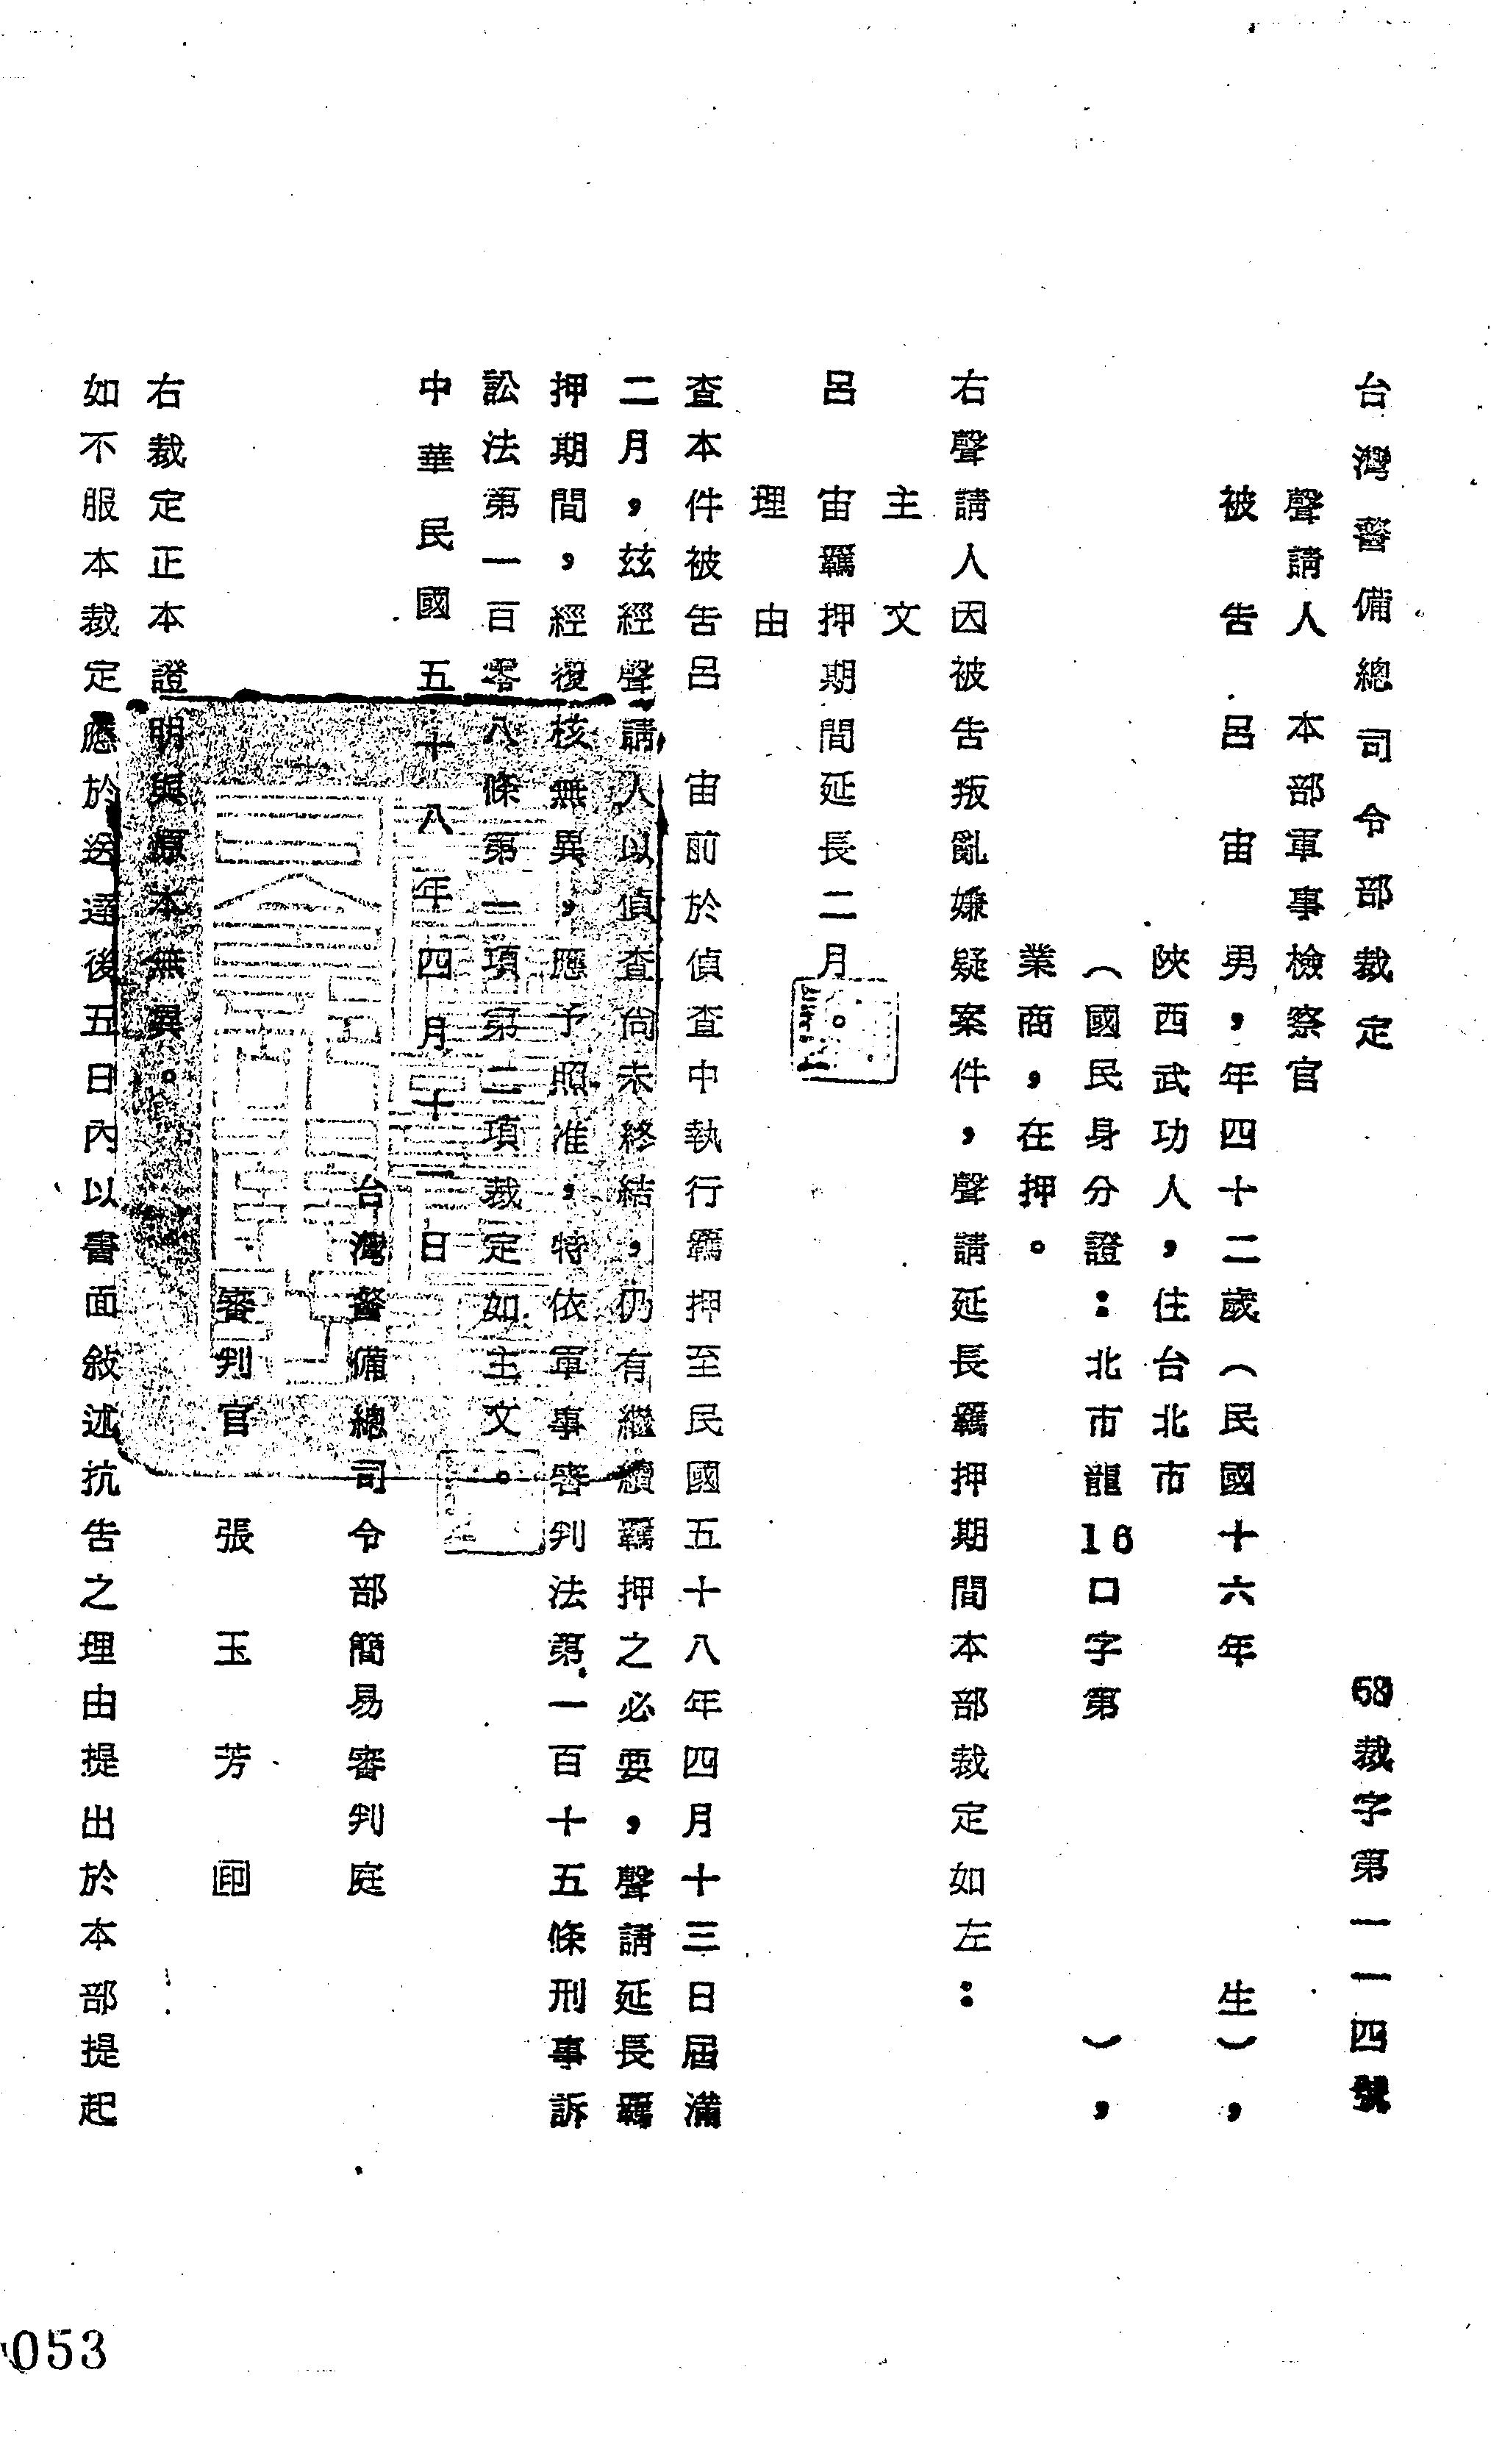 台灣警備總司令部裁定 裁字第一一四號
聲請人 本部軍事檢察官
被告 呂宙 男，年四十二歲（民國十六年 生），
陝西武功人，住台北市
（國民身分證：北市龍16口字第 ），
業商，在押。
右聲請人因被告叛亂嫌疑案件，聲請延長羈押期間本部裁定如左：
主文
呂宙羈押期間延長二月。
理由
查本件被告呂宙前於偵查中執行羈押至民國五十八年四月十三日屆滿
二月，茲經聲請人以偵查尚未終結，仍有繼續羈押之必要，聲請延長羈
押期間，經復核無異，應予照准，特依軍事審判法第一百十五條刑事訴
訟法第一百零八條第一項第二項裁定如主文。
中華民國五十八年四月十一日
台灣警備總司令部簡易審判庭
審判官 張玉芳 印
右裁定正本證明與原本無異。
如不服本裁定應於送達後五日內以書面敍述抗告之理由提出於本部提起
053